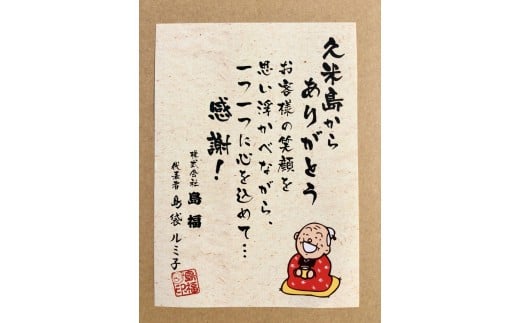 久米島から
ありがとう
お客様の笑顔を
思い浮かべながら、
一つ一つに心を込めて…
感謝！
株式会社 島福
代表者 島袋ルミ子
島福
印